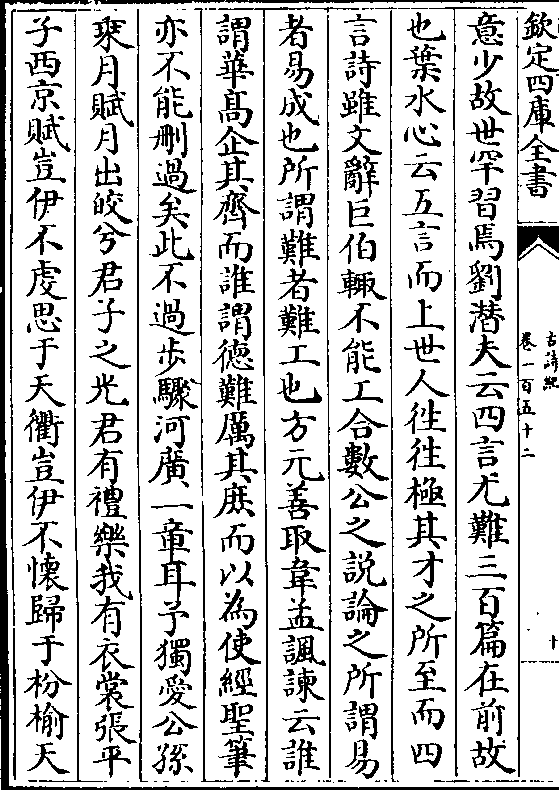 欽定四庫全書
古詩紀
卷一百五十二
十
意少故世罕習焉劉潛夫云四言尤難三百篇在前故
也葉水心云五言而上世人徃徃極其才之所至而四
言詩雖文辭巨伯輒不能工合數公之説論之所謂易
者易成也所謂難者難工也方元善取韋孟諷諫云誰
謂華髙企其齊而誰謂德難厲其庶而以為使經聖筆
亦不能刪過矣此不過步驟河廣一章耳予獨愛公孫
乘月賦月出皎兮君子之光君有禮樂我有衣裳張平
子西京賦豈伊不虔思于天衢豈伊不懷歸于枌榆天